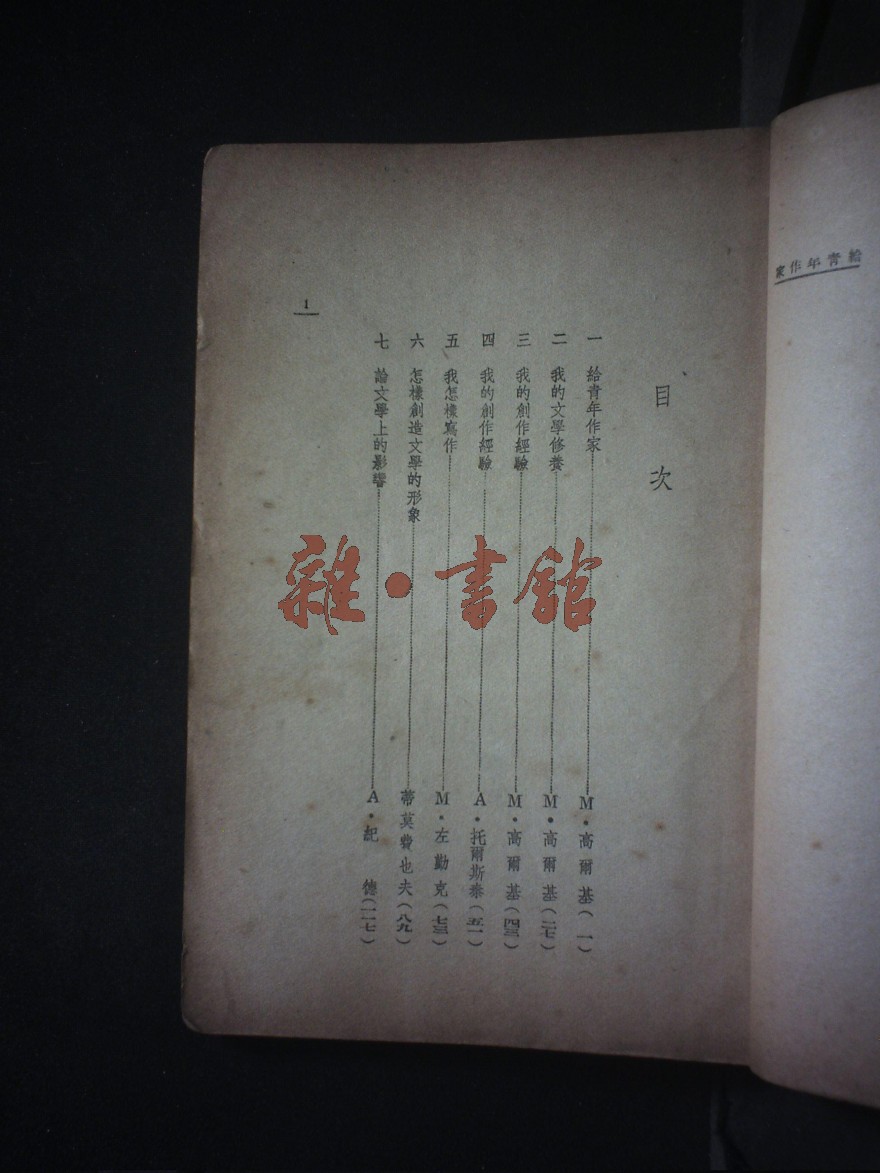 給青年作家
目次
一 給青年作家……M·高爾基(一)
二 我的文學修養……M·高爾基(二七)
三 我的創作經驗……M·高爾基(四三)
四 我的創作經驗……A·托爾斯泰(五一)
五 我怎樣寫作……M·左勤克(七三)
六 怎樣創造文學的形象……蒂莫費也夫(八九)
七 論文學上的影響……A·紀 德(一一七)
1
雜·書館